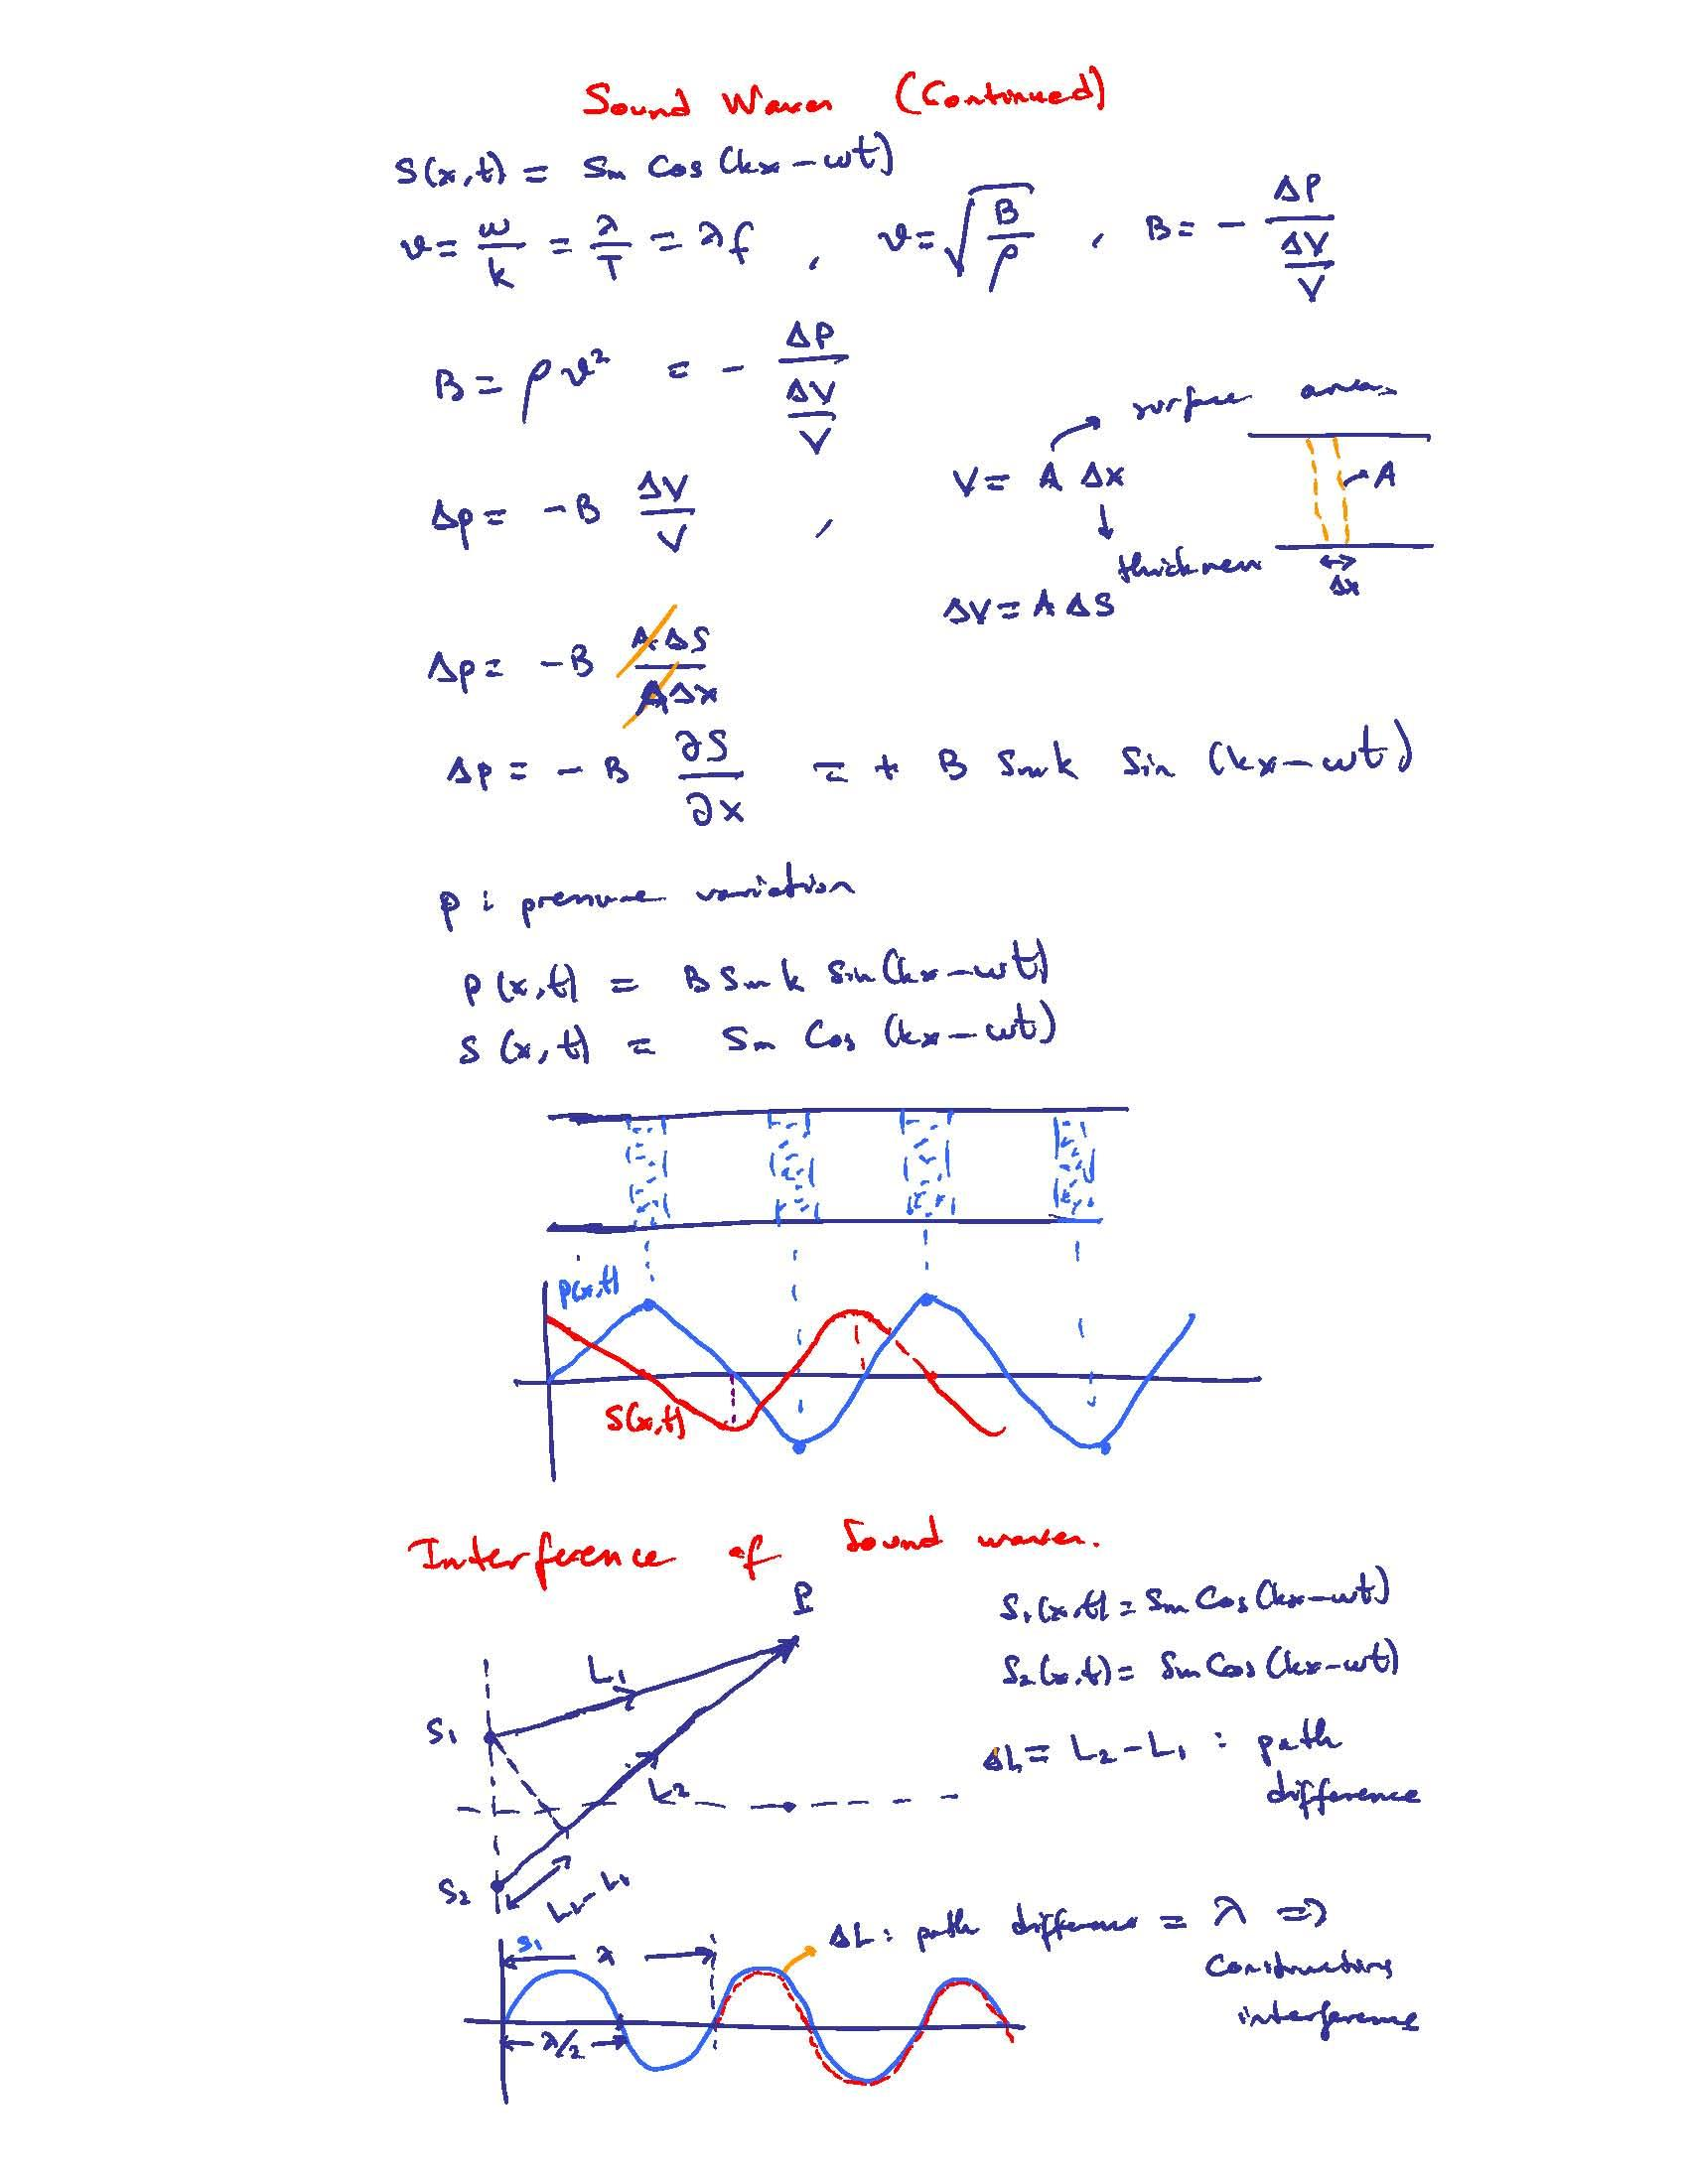 Sound Waves (Continued)
S(x,t) = Sm Cos (kx-ωt)
v = ω/k = λ/T = λf , v = √(B/ρ) , B = - ΔP/(ΔV/V)
B = ρv² = - ΔP/(ΔV/V)
surface area
Δp = -B ΔV/V , V = A Δx
A
thickness
Δx
ΔV = A ΔS
Δp = -B A·ΔS/AΔx
Δp = - B ∂S/∂x = + B Smk Sin (kx-ωt)
p : pressure variation
P(x,t) = B Sm k Sin(kx-ωt)
S(x,t) = Sm Cos (kx-ωt)
P(x,t)
S(x,t)
Interference of Sound waves.
P
S₁(x,t) = Sm Cos (kx-ωt)
L₁
S₂(x,t) = Sm Cos (kx-ωt)
S₁
ΔL = L₂-L₁ : path
L₂
difference
S₂
L₂-L₁
ΔL : path difference = λ ⇒
S₁
λ
Constructive
interference
λ/2